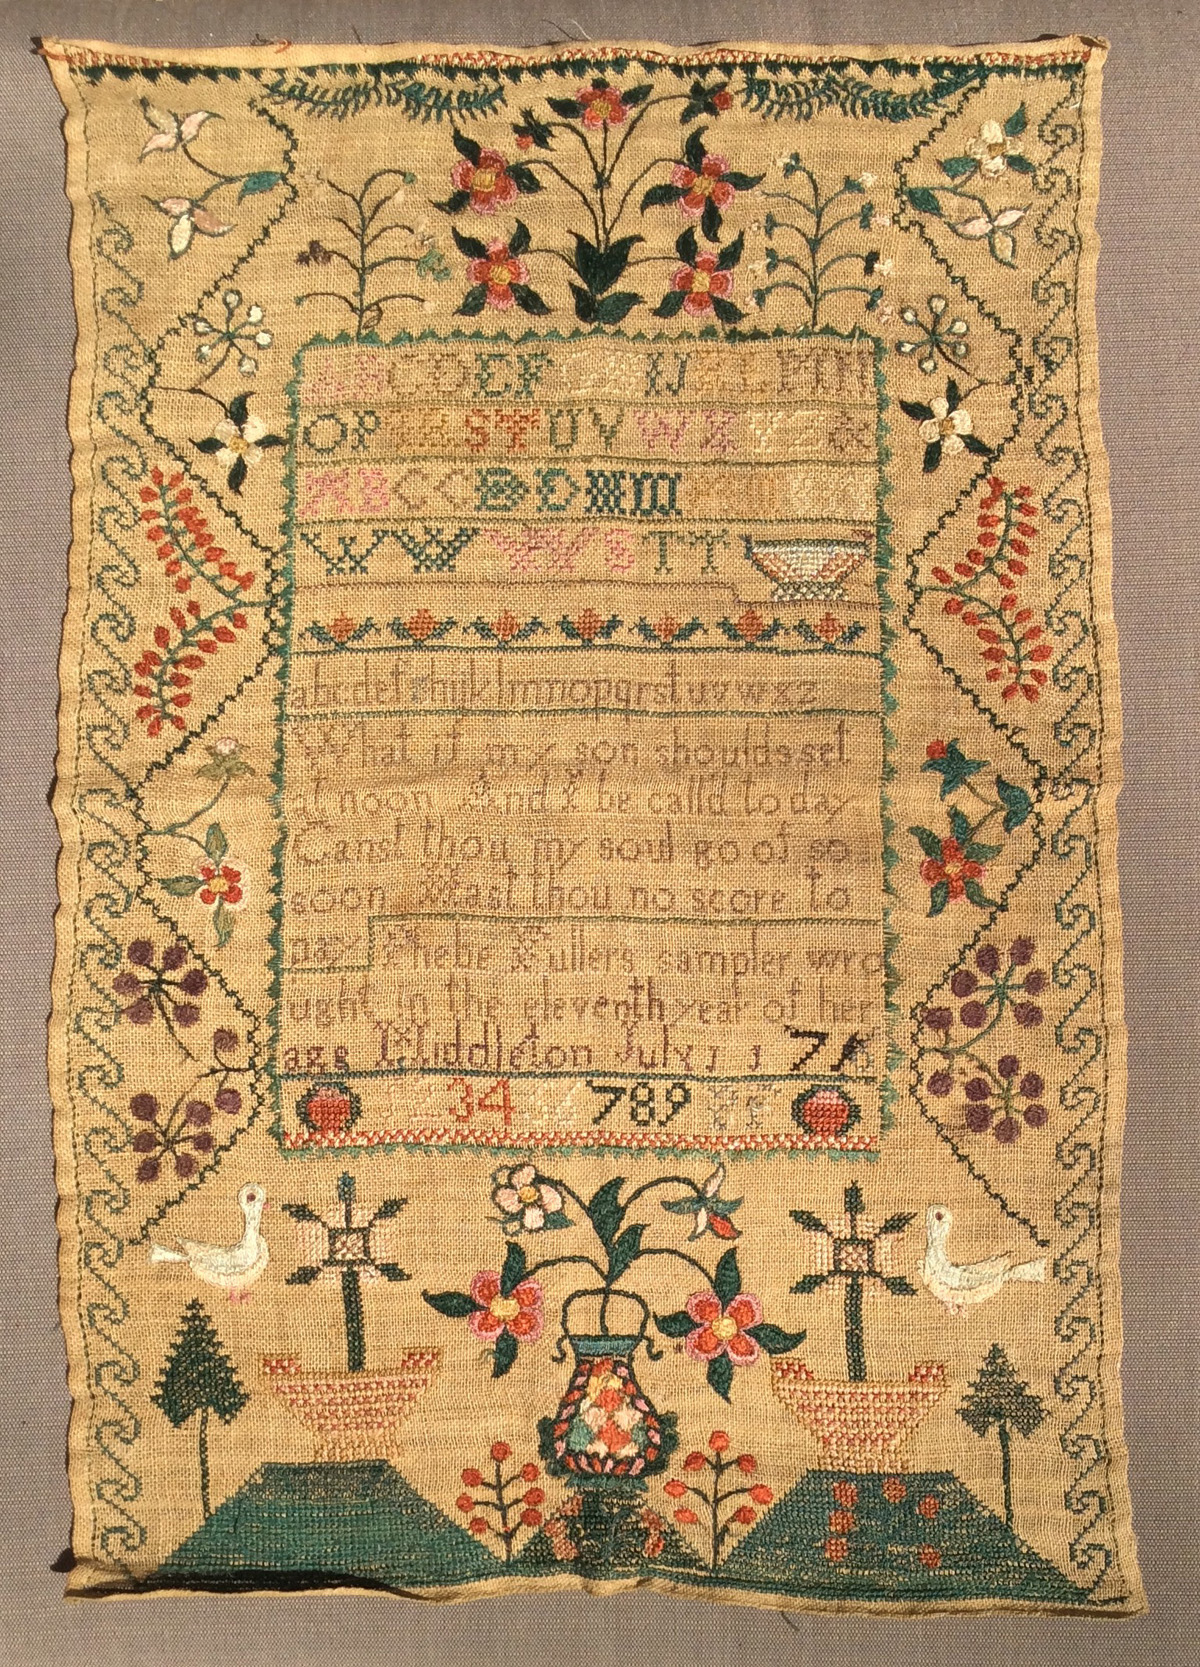 A B C D E F G H I J K L M N
O P Q R S T U V W X Y Z &
A B C C D D M
W W W W S T T
abcdefghijklmnopqrstuvwxz
What if my son should set
at noon And I be call'd to day
Canst thou my soul go of so
soon Hast thou no score to
pay Phebe Fullers sampler wro
ught in the eleventh year of her
age Middleton July 11 17
1 2 3 4 5 6 7 8 9 P F